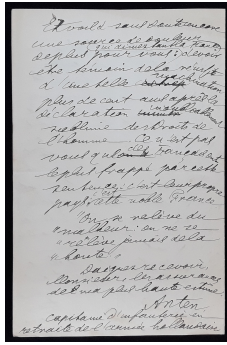 Et voilà sans doute encore
une source de douleur
de plus pour vous: devoir
être témoin de la
d'une telle machination
plus de cent ans après la
déclaration
des droits de
l'homme. Ce n'est pas
vous qu'on a
le plus frappé par cette
sentence: c'est leur propre
pays, cette noble France
"On se relève du
malheur: on ne se
relève jamais de la
honte".
Daignez recevoir,
Monsieur, les assurances
de ma plus haute estime
Anten
capitaine d'infanterie en
retraite de l'armée hollandaise